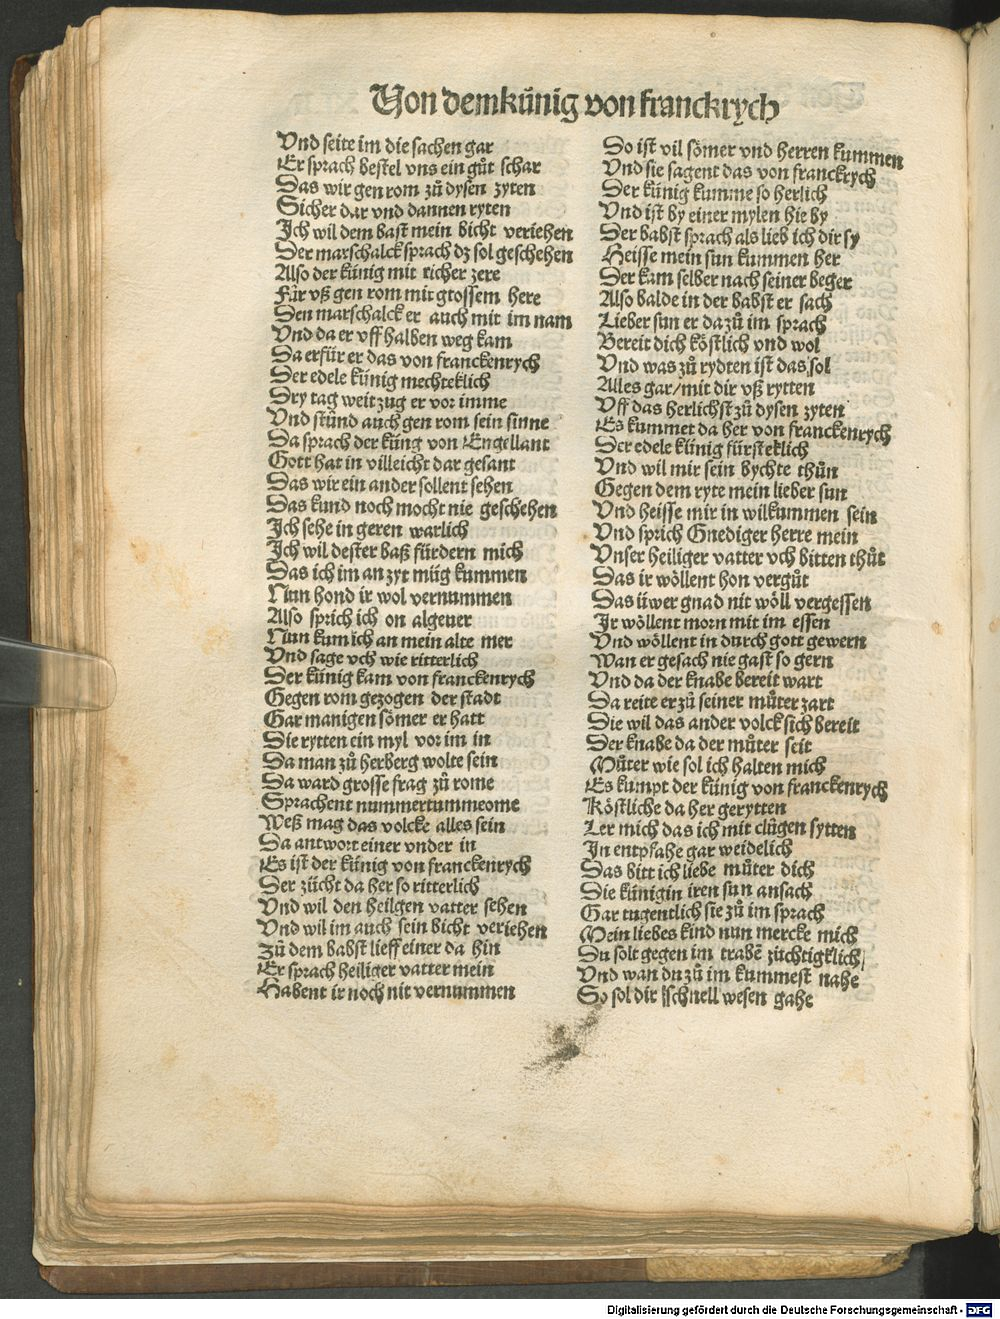 Von dem künig von franckrych
Vnd seite im die sachen gar
Er sprach bestel vns ein gůt schar
Das wir gen rom zů dysen zyten
Sicher dar vnd dannen ryten
Ich wil dem bast mein bicht veriehen
Der marschalck sprach dz sol geschehen
Also der künig mit richer zere
Für vß gen rom mit grossem here
Den marschalck er auch mit im nam
Vnd da er vff halben weg kam
Da erfůr er das von franckenrych
Der edele künig mechteklich
Dry tag weit zug er vor imme
Vnd stůnd auch gen rom sein sinne
Da sprach der küng von Engellant
Gott hat in villeicht dar gesant
Das wir ein ander sollent sehen
Das kund noch mocht nie geschehen
Ich sehe in geren warlich
Ich wil dester baß fürdern mich
Das ich im an zyt müg kummen
Nun hond ir wol vernummen
Also sprich ich on algeuer
Nun kum ich an mein alte mer
Vnd sage vch wie ritterlich
Der künig kam von franckenrych
Gegen rom gezogen der stadt
Gar manigen sömer er hatt
Die rytten ein myl vor im in
Da man zů herberg wolte sein
Da ward grosse frag zů rome
Sprachent nummertummeome
Weß mag das volcke alles sein
Da antwort einer vnder in
Es ist der künig von franckenrych
Der zücht da her so ritterlich
Vnd wil den heilgen vatter sehen
Vnd wil im auch sein bicht veriehen
Zů dem babst lieff einer da hin
Er sprach heiliger vatter mein
Habent ir noch nit vernummen
So ist vil sömer vnd herren kummen
Vnd sie sagent das von franckrych
Der künig kumme so herlich
Vnd ist by einer mylen hie by
Der babst sprach als lieb ich dir sy
Heisse mein sun kummen her
Der kam selber nach seiner beger
Also balde in der babst er sach
Lieber sun er da zů im sprach
Bereit dich köstlich vnd wol
Vnd was zů rydten ist das sol
Alles gar/mit dir vß rytten
Vff das herlichst zů dysen zyten
Es kummet da her von franckenrych
Der edele künig fürsteklich
Vnd wil mir sein bychte thůn
Gegen dem ryte mein lieber sun
Vnd heisse mir in wilkummen sein
Vnd sprich Gnediger herre mein
Vnser heiliger vatter vch bitten thůt
Das ir wöllent hon vergůt
Das üwer gnad nit wöll vergessen
Ir wöllent morn mit im essen
Vnd wöllent in durch gott gewern
Wan er gesach nie gast so gern
Vnd da der knabe bereit wart
Da reite er zů seiner můter zart
Die wil das ander volck sich bereit
Der knabe da der můter seit
Můter wie sol ich halten mich
Es kumpt der künig von franckenrych
Köstliche da her gerytten
Ler mich das ich mit clůgen sytten
In entpfahe gar weidelich
Das bitt ich liebe můter dich
Die künigin iren sun ansach
Gar tugentlich sie zů im sprach
Mein liebes kind nun mercke mich
Du solt gegen im trabē züchtigklich/
Vnd wan du zů im kummest nahe
So sol dir schnell wesen gahe
Digitalisierung gefördert durch die Deutsche Forschungsgemeinschaft - DFG